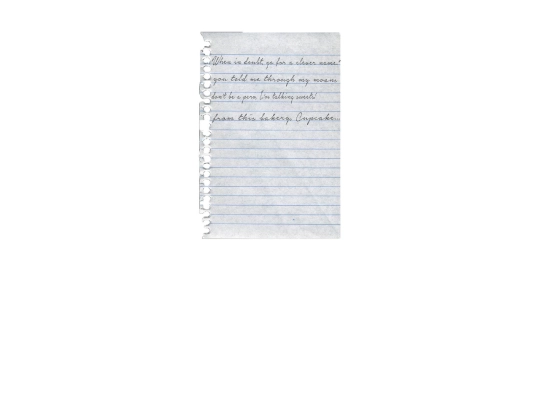 When in doubt go for a clever name"
you told me through my moans
don't be a perv I'm talking sweets
from this bakery. Cupcake...